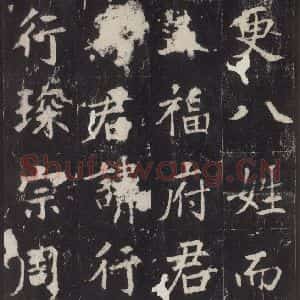 更八姓而
福府君
君諱行
行琛宗周
Shufawang.CN